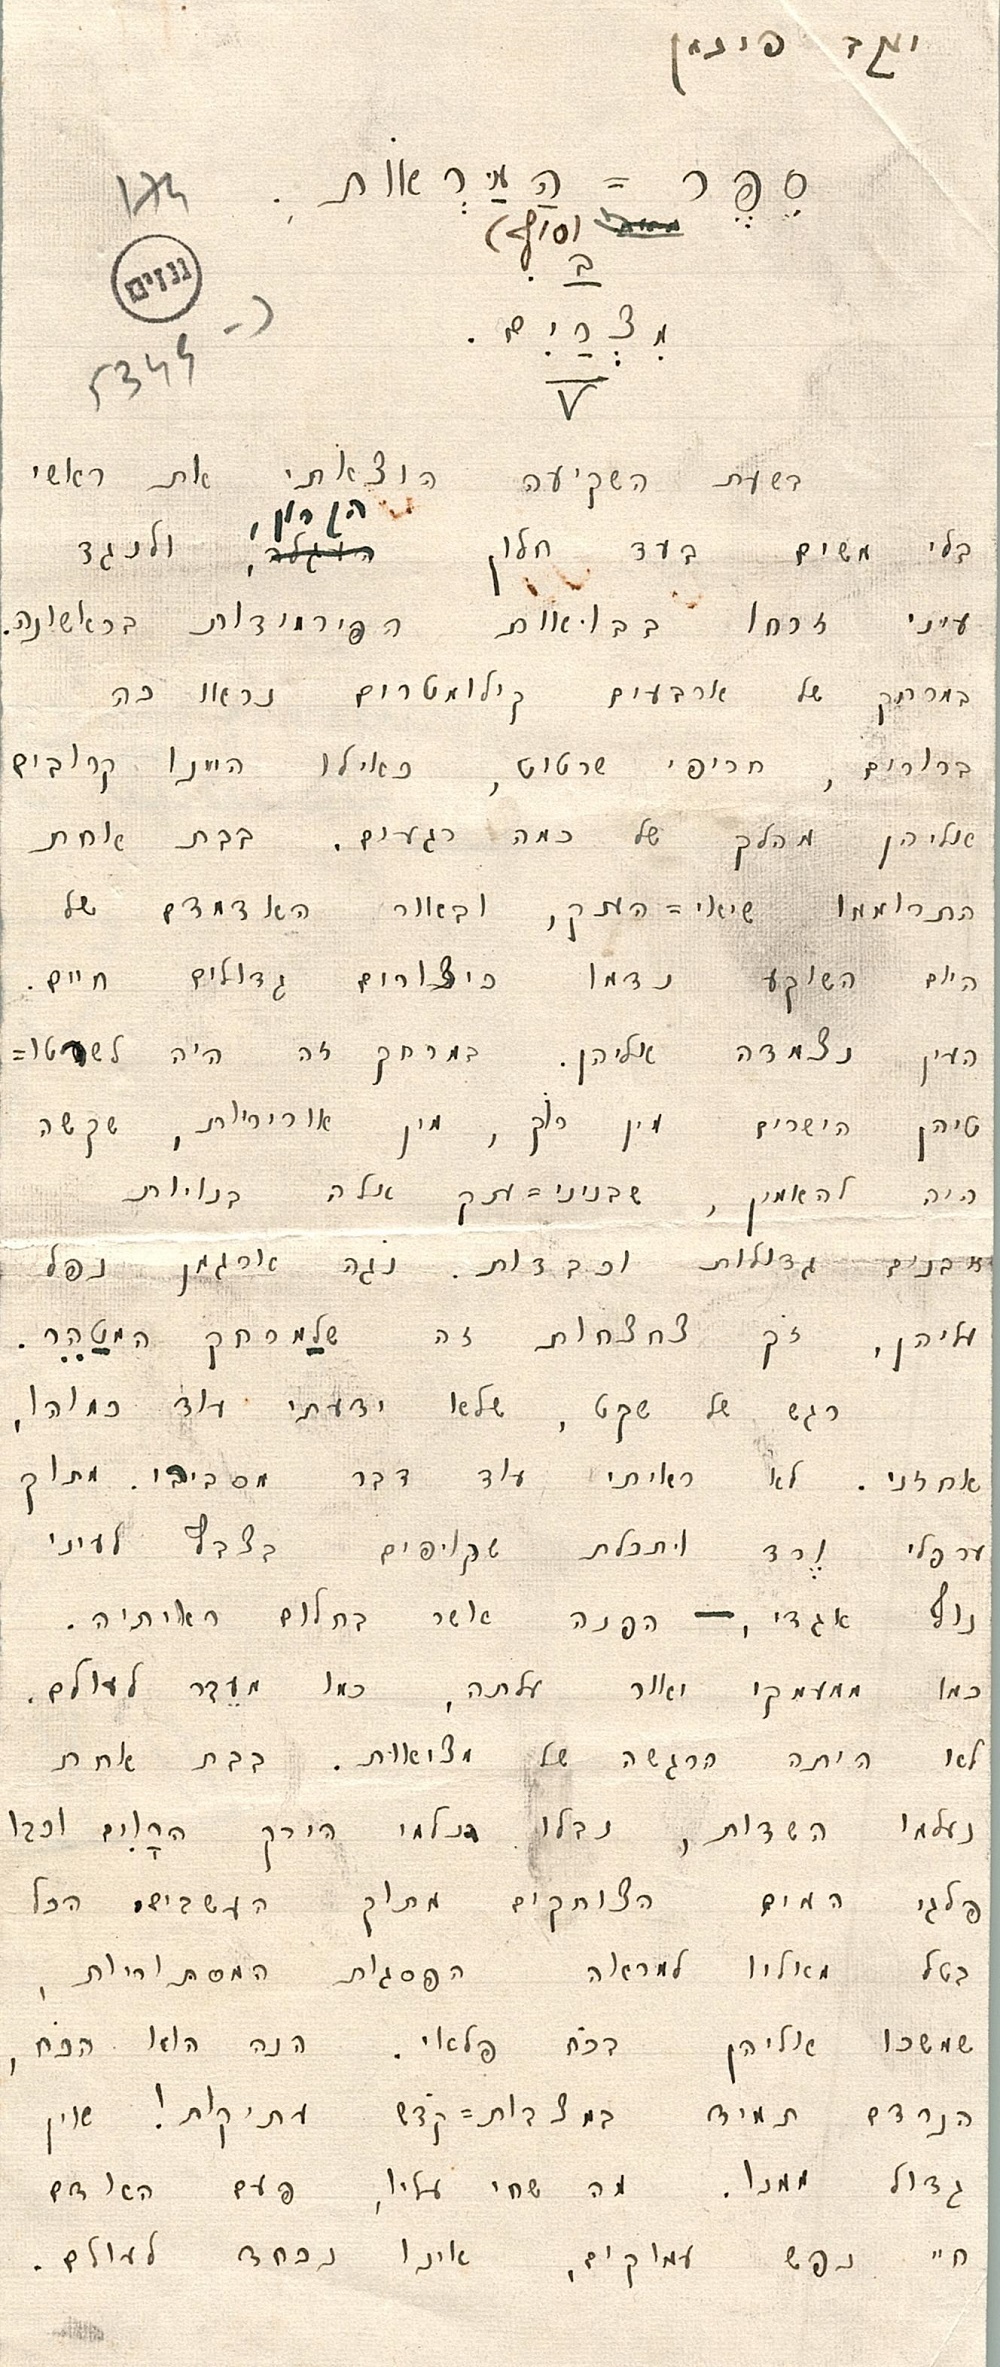 יעקב פיכמן
סֵפֶר = הַמַּרְאוֹת.
(סוף)
ב.
מִצְרַיִם.
V
174
גנזים
כ-
5344
בשעת השקיעה הוצאתי את ראשי
בלי משים בעד חלון הקרון, ולנגד
עיני זרחו בבואות הפירמידות בראשונה.
במרחק של ארבעים קילומטרים נראו כה
ברורים, חריפי שרטוט, כאילו היינו קרובים
אליהן מהלך של כמה רגעים. בבת אחת
התרוממו שיאי=העתק, ובאור האדמדם של
היום השוקע נדמו כיצורים גדולים חיים.
העין נצמדה אליהן. במרחק זה היה לשרטו=
טיהן הישרים מין רֹך, מין אויריות, שקשה
היה להאמין, שבניני=עתק אלה בנויות
אבנים גדולות וכבדות. נֹגה ארגמן נפל
עליהן, זֹך צחצחות זה שלַמרחק המטַהֵר.
רגש של שקט, שלא ידעתי עוד כמוהו,
אחזני. לא ראיתי עוד דבר מסביבי. מתוך
ערפלי וֶרד ותכלת שקופים בצבץ לעיני
נוף אגדי, — הפנה אשר בחלום ראיתיה.
כמו ממעמקי ואור עלתה, כמו מעֵבר לעולם.
לא היתה הרגשה של מציאות. בבת אחת
נעלמו השדות, נבלו תלמי הירק הרָוִים וכבו
פלגי המים הצוחקים מתוך העשבים. הכל
בטל מאליו למראה הפסגות המסתוריות,
שמשכו אליהן בכֹח פלאי. הנה הוא הכֹח,
הנרדם תמיד במצבות=קֹדש עתיקות! אין
גדול ממנו. מה שחי עליו, פעם האדם
חיי נפש עמוקים, אינו נכחד לעולם.